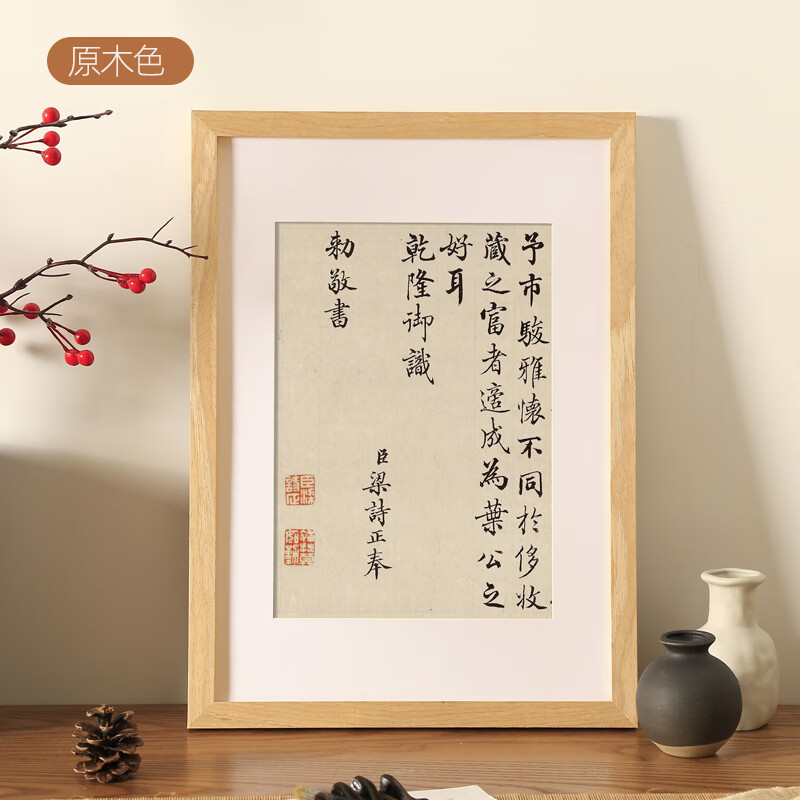 原木色
予市駿雅懷不同於侈收
藏之富者適成為葉公之
好耳
乾隆御識
臣梁詩正奉
勅敬書